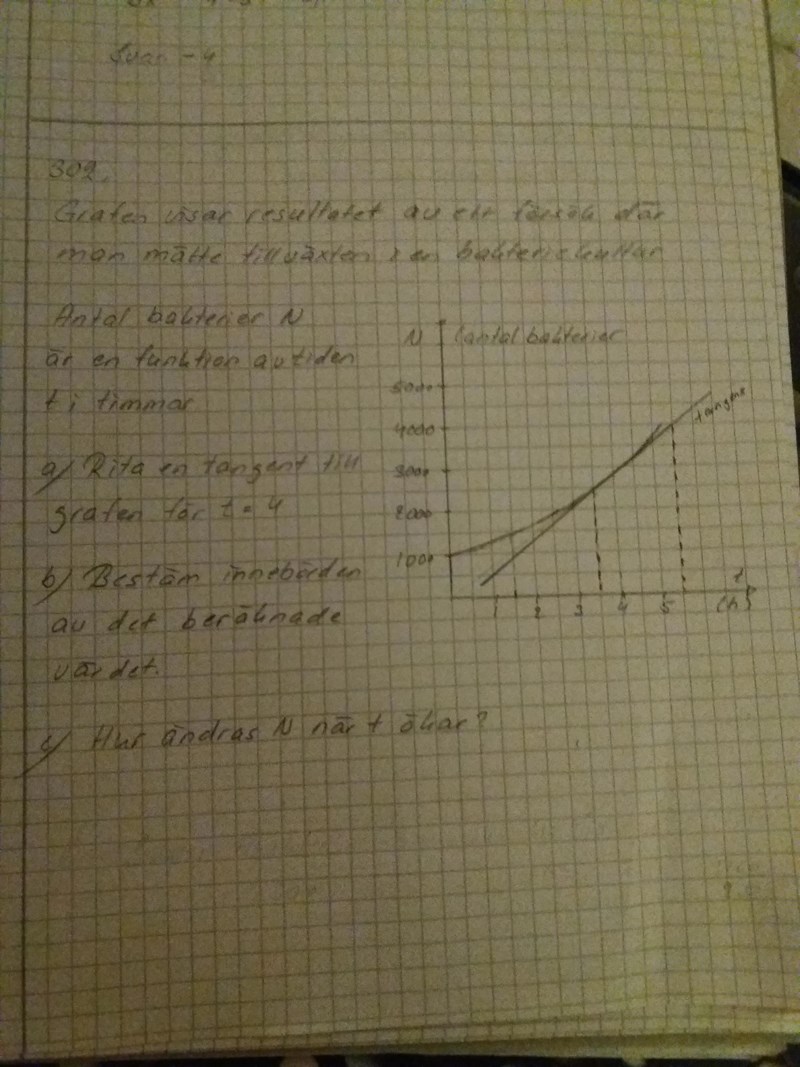 Svar -4
302.
Grafen visar resultatet av ett försök där
man mätte tillväxten i en bakteriekultur
Antal bakterier N
är en funktion av tiden
t i timmar
a) Rita en tangent till
grafen för t = 4
b) Bestäm innebörden
av det beräknade
värdet.
c) Hur ändras N när t ökar?
N (antal bakterier
5000
4000
3000
2000
1000
tangent
1 2 3 4 5 t (h)